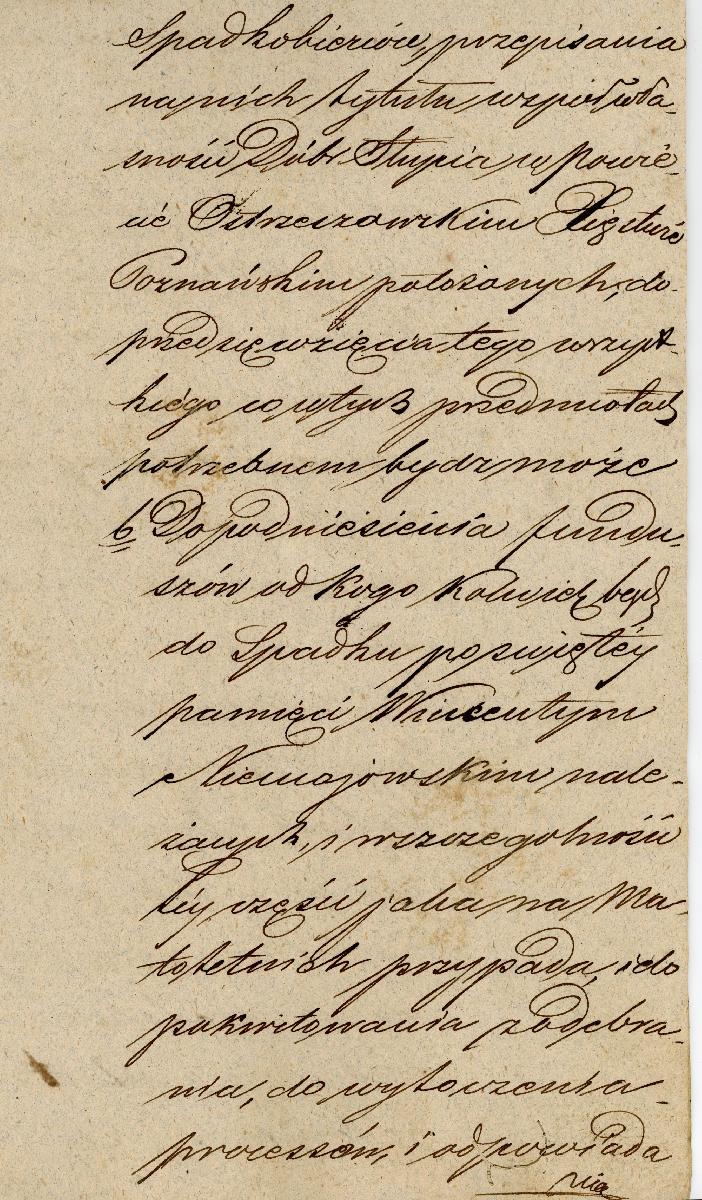 Spadkobierców, przepisania
na nich tytułu współwła-
sności Dóbr Słupia w Powie-
cie Ostrzeszowskim Xięstwie
Poznańskim położonych, do-
przedsięwzięcia tego wszyst-
kiego co w tych przedmiotach
potrzebnem bydz może
6 Do podniesienia fundu-
szów od kogo kolwiek bądź
do Spadku po swiętéy
pamięci Wincentym
Niemojowskim nale-
żących, i w szczegolności
téy części jaka na Ma-
łoletnich przypada, i do
pokwitowania z odebra-
nia, do wytoczenia
processów, i odpowiada
nia